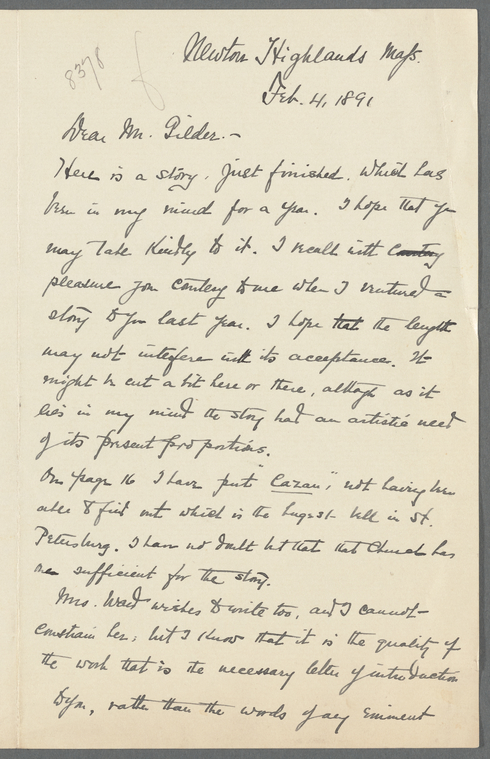 8378
Newton Highlands Mass.
Feb. 4, 1891
Dear Mr. Gilder.-
Here is a story, just finished, which has
been in my mind for a year. I hope that you
may take kindly to it. I recall with
pleasure your courtesy to me when I ventured a
story to you last year. I hope that the length
may not interfere with its acceptance. It
might be cut a bit here or there, although as it
lies in my mind the story had an artistic need
of its present proportions.
On page 16 I have put "Cazan", not having been
able to find out which is the largest bell in St.
Petersburg. I have no doubt but that that Church has
one sufficient for the story.
Mrs. Ward wishes to write too, and I cannot
constrain her; but I know that it is the quality of
the work that is the necessary letter of introduction
to you, rather than the words of any eminent